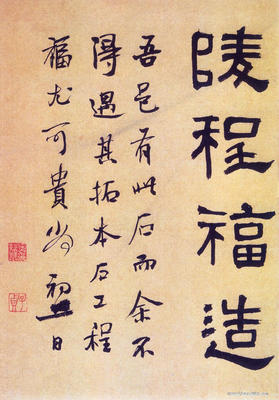 陵程福造
吾邑有此石而余不
得遇其拓本石工程
福尤可貴
日